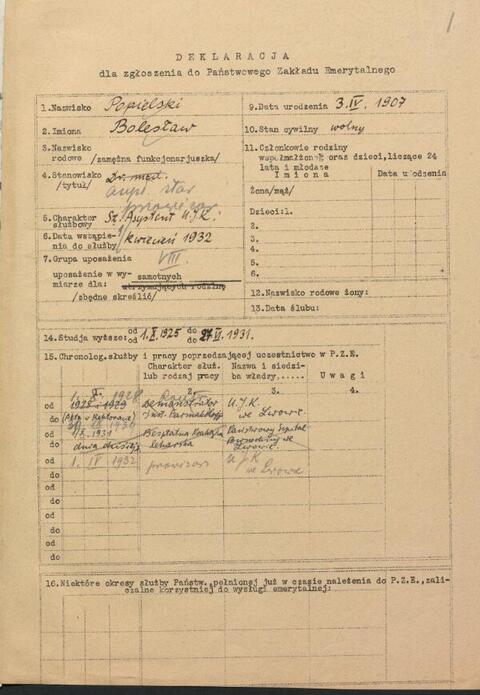 1
DEKLARACJA
dla zgłoszenia do Państwowego Zakładu Emerytalnego
1.Nazwisko Popielski
2.Imiona Bolesław
3.Nazwisko rodowe /zamężna funkcjonarjuszka/
4.Stanowisko /tytuł/ Dr. med.
5.Charakter służbowy St. Asystent U.J.K.
6.Data wstąpienia do służby kwiecień 1932
7.Grupa uposażenia VIII.
uposażenie w wymiarze dla: samotnych
utrzymujących rodzinę
/zbędne skreślić/
9.Data urodzenia 3.IV. 1907
10.Stan cywilny wolny
11.Członkowie rodziny
współmałżonek oraz dzieci, liczące 24
lata i młodsze
Imiona Data urodzenia
Żona/mąż/
Dzieci:1.
2.
3.
4.
5.
6.
12.Nazwisko rodowe żony:
13.Data ślubu:
14.Studja wyższe: od 1.X.1925 do 27.VI.1931.
od do
15.Chronolog.służby i pracy poprzedzającej uczestnictwo w P.Z.E.
Charakter służ. lub rodzaj pracy
Nazwa i siedziba władzy,.....
Uwagi
1. 2. 3. 4.
od 1928 - 1929 Demonstrator U.J.K.
do we Lwowie
od 1931 Bezpłatna Praktyka Państwowy Szpital
do dnia dzisiaj lekarska Powszechny we Lwowie
od 1. IV 1932 U J K
do we Lwowie
od
do
od
do
od
do
od
do
16.Niektóre okresy służby Państw.,pełnionej już w czasie należenia do P.Z.E.,zaliczalne korzystniej do wysługi emerytalnej: